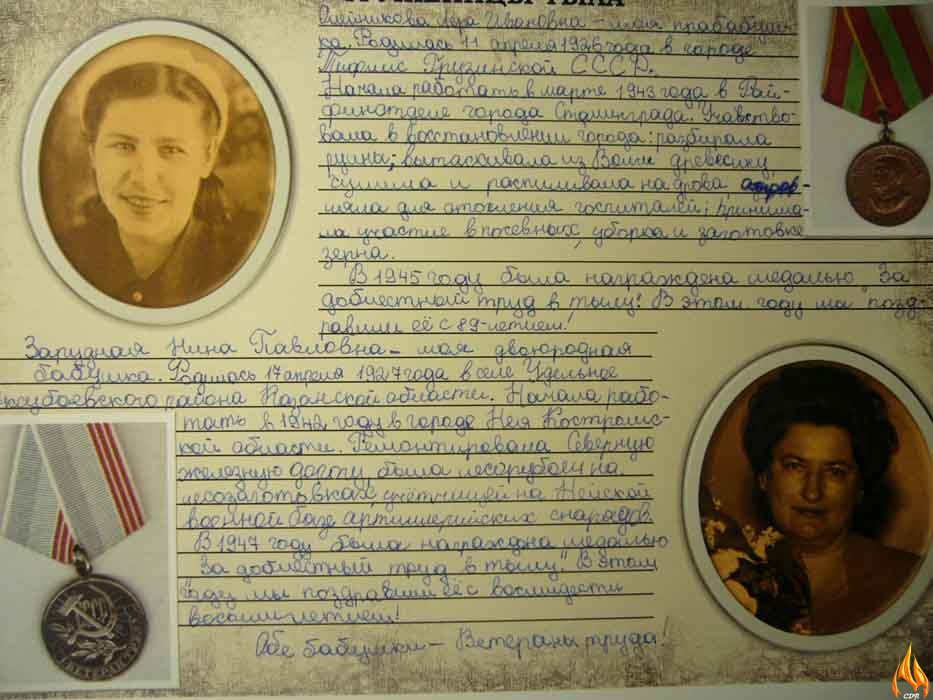 ТРУЖЕНИЦЫ ТЫЛА
Олейникова Вера Ивановна – моя прабабуш-
ка. Родилась 11 апреля 1926 года в городе
Тифлис Грузинской СССР.
Начала работать в марте 1943 года в Рай-
финотделе города Сталинграда. Участво-
вала в восстановлении города: разбирала
руины; вытаскивала из Волги древесину,
сушила и распиливала на дрова отправ-
ляла для отопления госпиталей; принима-
ла участие в посевных, уборка и заготовке
зерна.
В 1945 году была награждена медалью "За
доблестный труд в тылу". В этом году мы позд-
равили её с 89-летием!
Зарудная Нина Павловна – моя двоюродная
бабушка. Родилась 17 апреля 1927 года в селе Удельное
района Казанской области. Начала рабо-
тать в 1942 году в городе Нея Костромс-
кой области. Ремонтировала Северную
железную дорогу, была лесорубом на
лесозаготовках, учётчицей на Нейской
военной базе артиллерийских снарядов.
В 1947 году была награждна медалью
"За доблестный труд в тылу". В этом
году мы поздравили её с восмидести
восьмилетием!
Обе бабушки – Ветераны труда!
ВЕТЕРАН ТРУДА
CDR